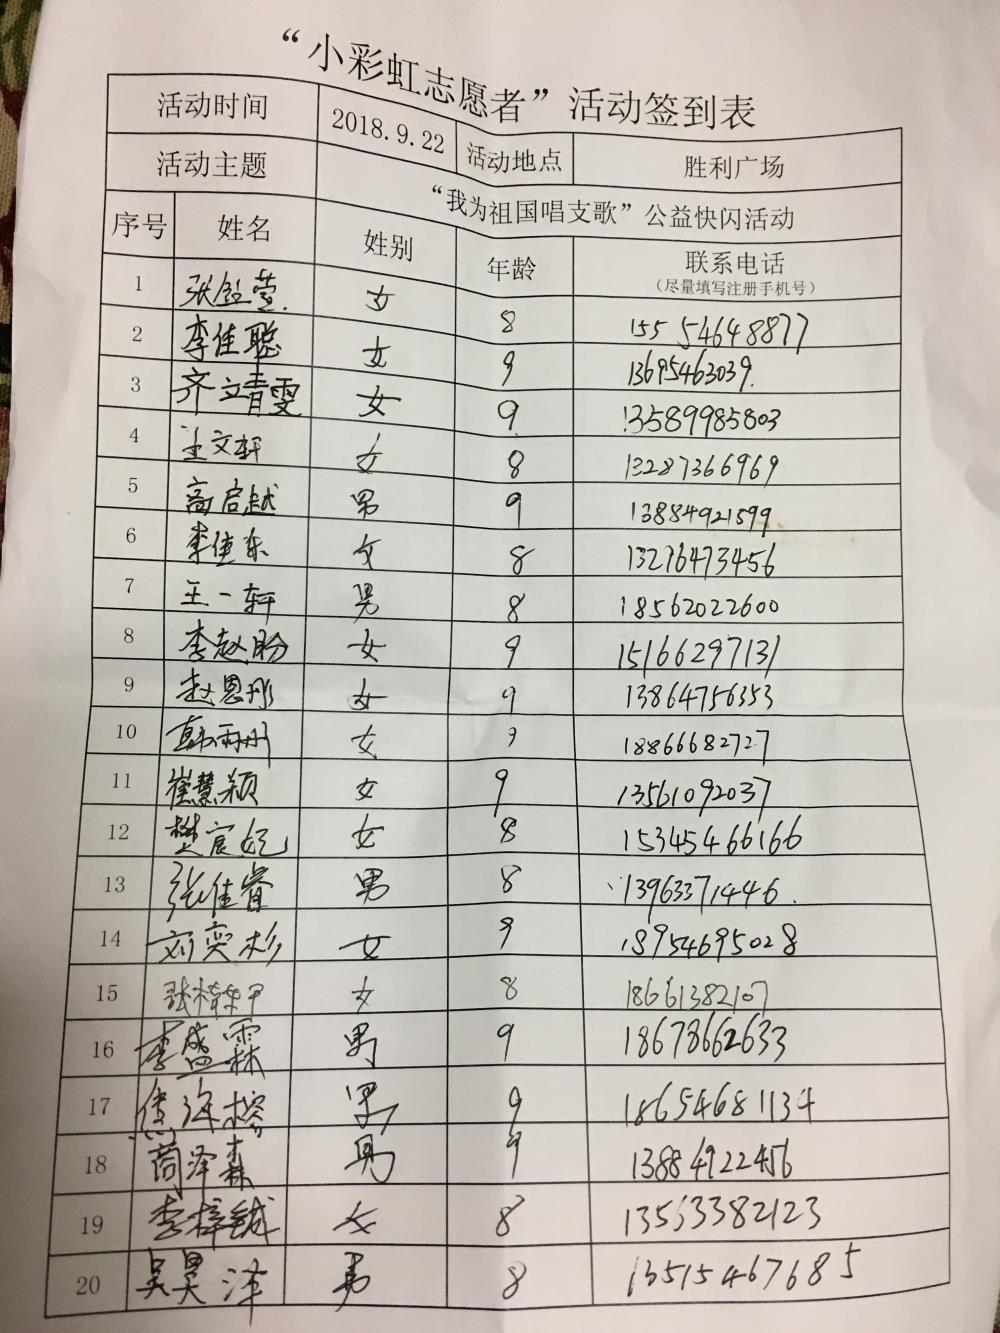 “小彩虹志愿者”活动签到表
活动时间 2018.9.22 活动地点 胜利广场
活动主题 “我为祖国唱支歌”公益快闪活动
序号 姓名 姓别 年龄 联系电话
（尽量填写注册手机号）
1 张鈺萱 女 8 15554648877
2 李佳聪 女 9 13695463039.
3 齐立青雯 女 9 13589985803
4 王文轩 女 8 13287366969
5 高启越 男 9 13884921599
6 李佳东 女 8 13276473456
7 王一轩 男 8 18562022600
8 李赵盼 女 9 15166297131
9 赵恩彤 女 9 13864756353
10 韩雨彤 女 9 18866682727
11 崔慧颖 女 9 13561092037
12 樊宸妃 女 8 15345466166
13 张佳睿 男 8 13963371446.
14 刘奕杉 女 9 18954695028
15 女 8 18661382107
16 李盛霖 男 9 18678662633
17 男 9 18654681134
18 荀泽森 男 9 13884922456
19 李梓铖 女 8 13563382123
20 吴昊泽 男 8 13515467685